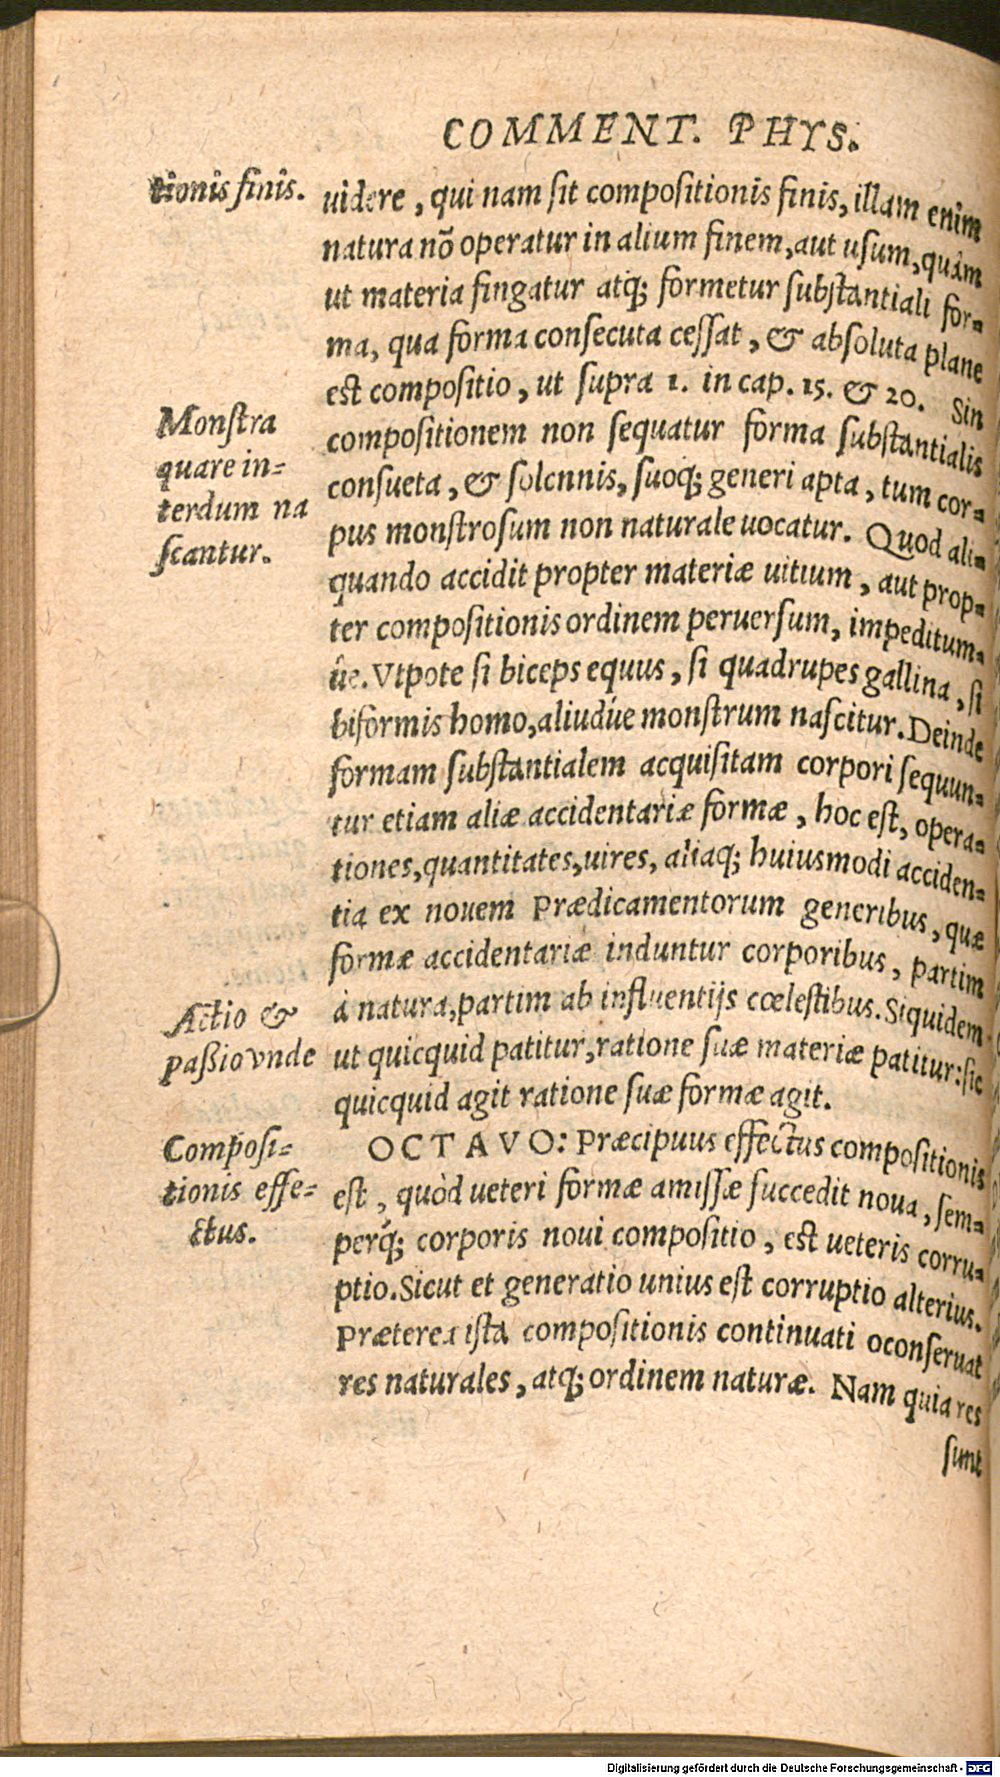 COMMENT. PHYS.
tionis finis.
uidere, qui nam sit compositionis finis, illam enim
natura nõ operatur in alium finem, aut usum, quàm
ut materia fingatur atq; formetur substantiali for-
ma, qua forma consecuta cessat, & absoluta plane
est compositio, ut supra 1. in cap. 15. & 20. Sin
Monstra
quare in-
terdum na
scantur.
compositionem non sequatur forma substantialis
consueta, & solennis, suoq; generi apta, tum cor-
pus monstrosum non naturale uocatur. Quod ali-
quando accidit propter materiæ uitium, aut prop-
ter compositionis ordinem peruersum, impeditum-
ûe. Vtpote si biceps equus, si quadrupes gallina, si
biformis homo, aliudúe monstrum nascitur. Deinde
formam substantialem acquisitam corpori sequun-
tur etiam aliæ accidentariæ formæ, hoc est, opera-
tiones, quantitates, uires, aliaq; huiusmodi acciden-
tia ex nouem Prædicamentorum generibus, quæ
formæ accidentariæ induntur corporibus, partim
à natura, partim ab influentijs cœlestibus. Siquidem
Actio &
passio vnde
ut quicquid patitur, ratione suæ materiæ patitur: sic
quicquid agit ratione suæ formæ agit.
Composi-
tionis effe-
ctus.
OCTAVO: Præcipuus effectus compositionis
est, quòd ueteri formæ amissæ succedit noua, sem-
perq́; corporis noui compositio, est ueteris corru-
ptio. Sicut et generatio unius est corruptio alterius.
Præterea ista compositionis continuati oconseruat
res naturales, atq; ordinem naturæ. Nam quia res
sunt
Digitalisierung gefördert durch die Deutsche Forschungsgemeinschaft - DFG